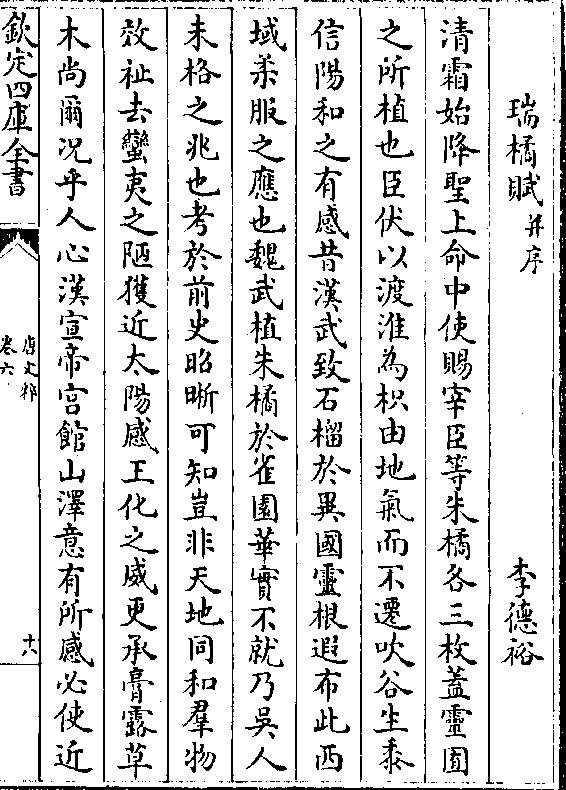 瑞橘賦并序　李德裕
清霜始降聖上命中使賜宰臣等朱橘各三枚蓋靈囿
之所植也臣伏以渡淮為枳由地氣而不遷吹谷生黍
信陽和之有感昔漢武致石榴於異國靈根遐布此西
域柔服之應也魏武植朱橘於雀園華實不就乃吳人
未格之兆也考於前史昭晰可知豈非天地同和羣物
效祉去蠻夷之陋獲近太陽感王化之威更承膏露草
木尚爾況乎人心漢宣帝宮館山澤意有所感必使近
欽定四庫全書
唐文粹
卷六
十八